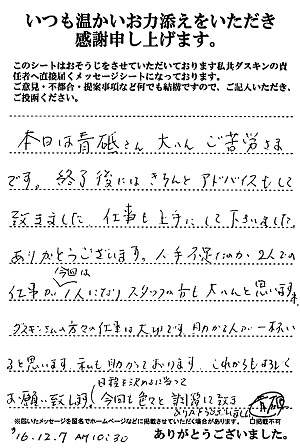 いつも温かいお力添えをいただき
感謝申し上げます。
このシートはおそうじをさせていただいております私共ダスキンの責
任者へ直接届くメッセージシートになっております。
ご意見・不都合・提案事項など何でも結構ですので、ご記入いただき、
ご投函ください。
本日は青砥さん 大へん ご苦労さま
です。終了後には きちんと アドバイスもして
致きました 仕事も上手にして下さいました。
ありがとうございます。人手不足なのか 2人での
今回は
仕事が 1人になり スタッフの方も大へんと思います。
ダスキンさんの方々の仕事は大切です 助かる人が一杯い
ると思います。私も助かっております これからもよろしく
日程を決めるに当って
お願い致します 今回も色々と
ありがとうございました
※届いたメッセージを匿名でホームページなどに掲載させていただく場合があります。 口掲載不可
'16.12.7 AM10:30
ありがとうございました。